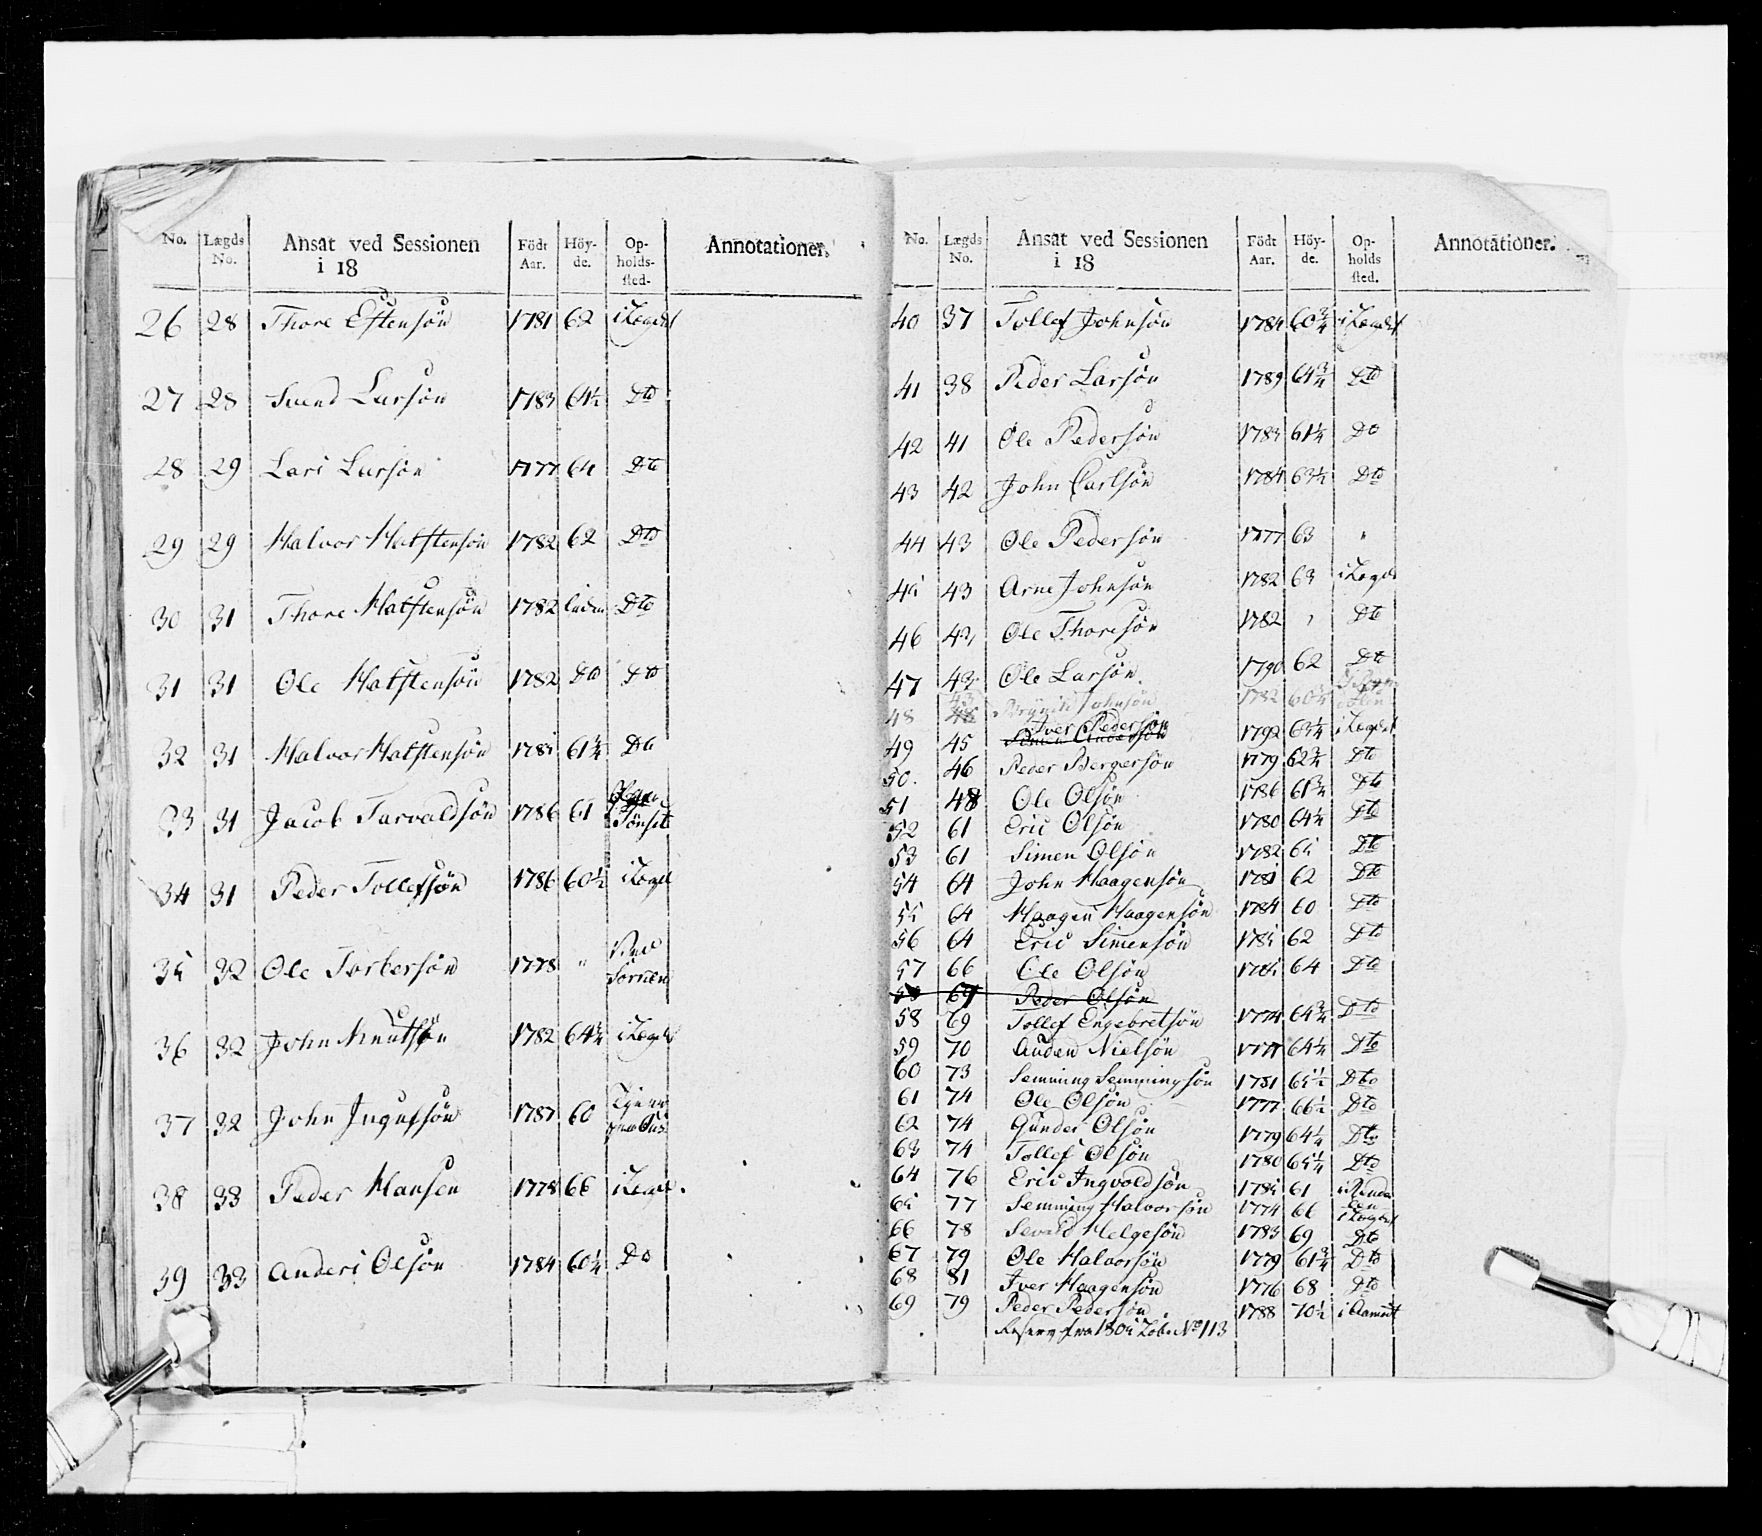 No. Lægds No. Ansat ved Sessionen i 18 Födt Aar. Höy-de. Op-holds-sted. Annotationer.
26 28 Thore Estensön 1781 62 i Lægdet
27 28 Svend Larsön 1783 64½ Dto
28 29 Lars Larsön 1777 64 Dto
29 29 Halvor Halstensön 1782 62 Dto
30 31 Thore Halstensön 1782 Dto
31 31 Ole Halstensön 1782 Do Dto
32 31 Halvor Halstensön 1785 61¼ Dto
33 31 Jacob Tarvaldsön 1786 61 Tönset
34 31 Peder Tollefsön 1786 60½ i Lægd
35 32 Ole Torbersön 1778 "
36 32 John Knutsön 1782 64¼ i Lægd
37 32 John Ingulfsön 1787 60
38 33 Peder Hansen 1778 66 i Lægd.
39 33 Anders Olsön 1784 60¼ Do
No. Lægds No. Ansat ved Sessionen i 18 Födt Aar. Höy-de. Op-holds sted. Annotationer.
40 37 Tollef Johnsön 1784 60¾ i Lægdet
41 38 Peder Larsön 1789 64¾ Dto
42 41 Ole Pedersön 1783 61¼ Do
43 42 John Carlsön 1784 63¼ Dto
44 43 Ole Pedersön 1777 63 "
45 43 Arne Johnsön 1782 63 i Lægdet
46 43 Ole Thoresön 1782 " Dto
47 43 Ole Larsön 1790 62 Dto
48 43 Johnsön 1782
49 45 Iver Pedersön 1792 63¼ i Lægdet
50. 46 Peder Bergersön 1779 62¾ Dto
51 48 Ole Olsön 1786 61¾ Dto
52 61 Eric Olsön 1780 64¼ Dto
53 61 Simen Olsön 1782 65 Dto
54 64 John Haagensön 1781 62 Dto
55 64 Haagen Haagensön 1784 60 Dto
56 64 Eric Simensön 1785 62 Dto
57 66 Ole Olsön 1785 64 Dto
58 69 Peder Olsön
58 69 Tollef Engebretsön 1774 64¾ Dto
59 70 Auden Nielsön 1777 64¼ Dto
60 73 Semming Semmingsön 1781 65½ Dto
61 74 Ole Olsön 1777 66½ Dto
62 74 Gunder Olsön 1779 64¼ Dto
63 74 Tollef Olsön 1780 65¼ Dto
64 76 Eric Ingvoldsön 1785 61
65 77 Semming Halvorsön 1774 66 i Lægdet
66 78 Sevald Helgesön 1783 69 Dto
67 79 Ole Halvorsön 1779 61¾ Dto
68 81 Iver Haagensön 1776 68 Dto
69 79 Peder Pedersön 1788 70½
Reserv fra 1805 Löb. No 113